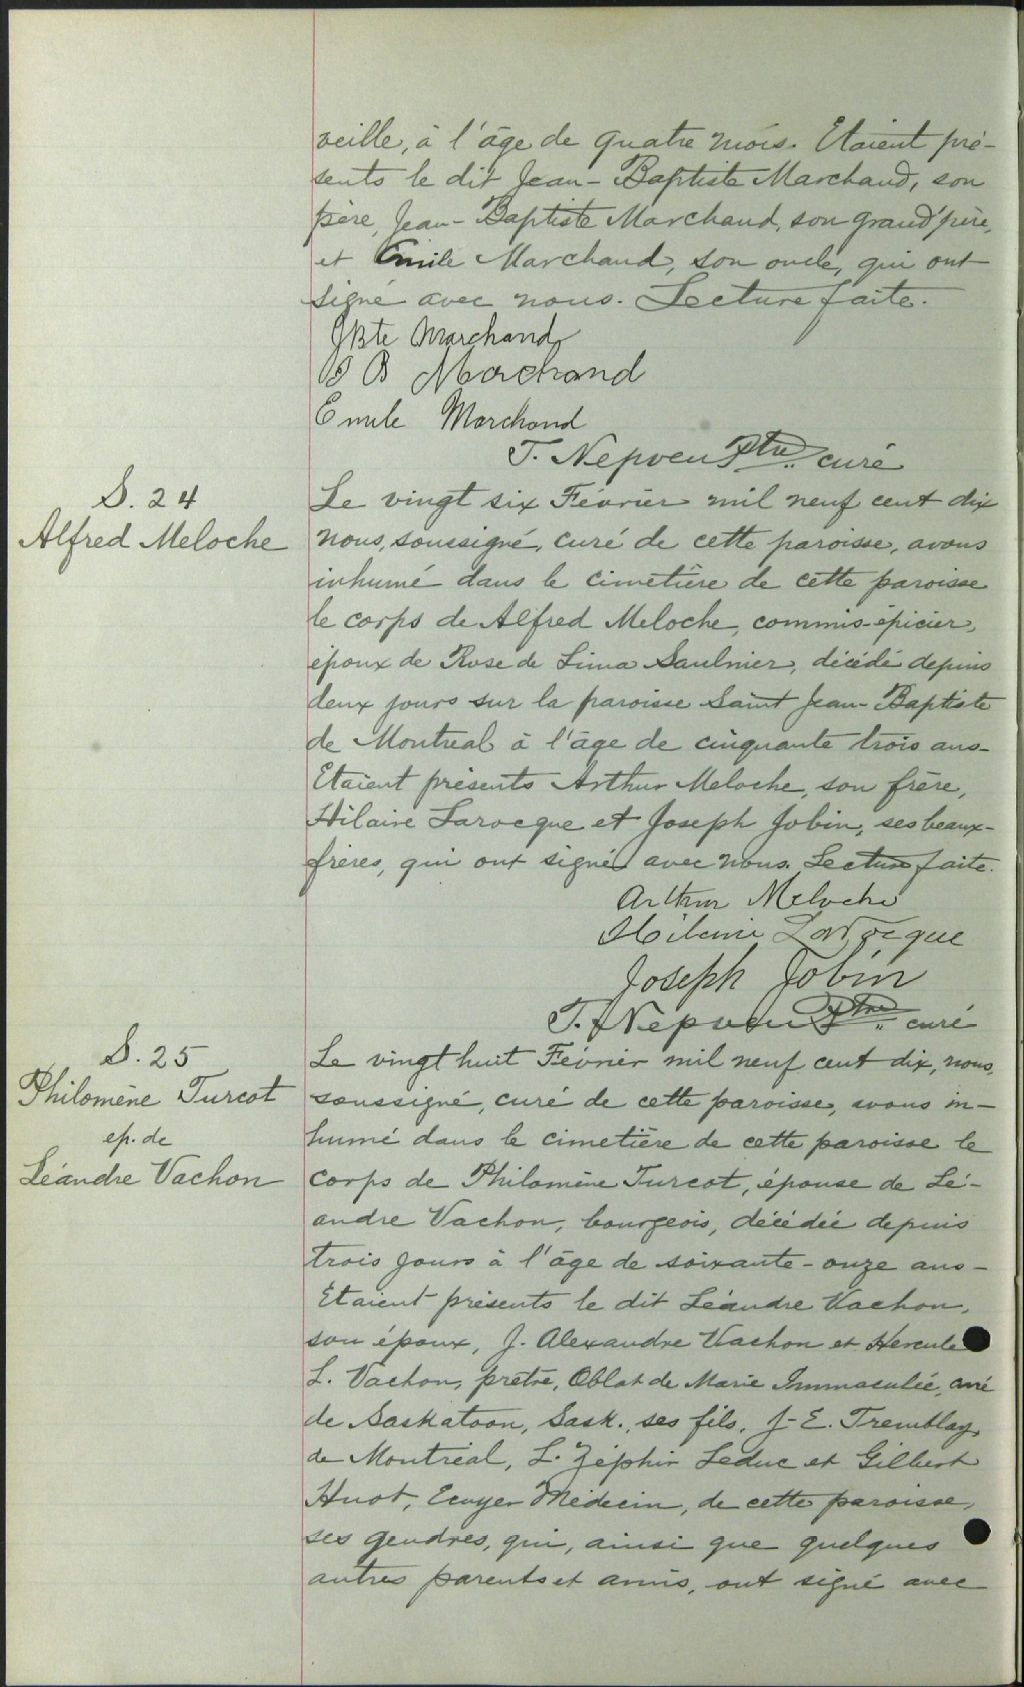 veille, à l'âge de quatre mois. Etaient pré-
sents le dit Jean-Baptiste Marchand, son
père, Jean-Baptiste Marchand, son grand'père,
et Emile Marchand, son oncle, qui ont
signé avec nous. Lecture faite.
JBte Marchand
J B Marchand
Emile Marchand
T. Nepveu Ptre curé
S. 24
Alfred Meloche
Le vingt six Février mil neuf cent dix
nous, soussigné, curé de cette paroisse, avons
inhumé dans le cimetière de cette paroisse
le corps de Alfred Meloche, commis-épicier,
époux de Rose de Lima Saulnier, décédé depuis
deux jours sur la paroisse Saint Jean-Baptiste
de Montreal à l'âge de cinquante trois ans-
Etaient présents Arthur Meloche, son frère,
Hilaire Larocque et Joseph Jobin, ses beaux-
frères, qui ont signé avec nous. Lecture faite.
Arthur Meloche
Hilaire Larocque
Joseph Jobin
T. Nepveu Ptre curé
S. 25
Philomène Turcot
ep. de
Léandre Vachon
Le vingt huit Février mil neuf cent dix, nous,
soussigné, curé de cette paroisse, avons in-
humé dans le cimetière de cette paroisse le
corps de Philomène Turcot, épouse de Lé-
andre Vachon, bourgeois, décédée depuis
trois jours à l'âge de soixante-onze ans-
Etaient présents le dit Léandre Vachon,
son époux, J. Alexandre Vachon et Hercule
L. Vachon, prêtre, Oblat de Marie Immaculée, curé
de Saskatoon, Sask., ses fils, J-E. Tremblay,
de Montréal, L. Zéphir Leduc et Gilbert
Huot, Ecuyer Médecin, de cette paroisse,
ses gendres, qui, ainsi que quelques
autres parents et amis, ont signé avec